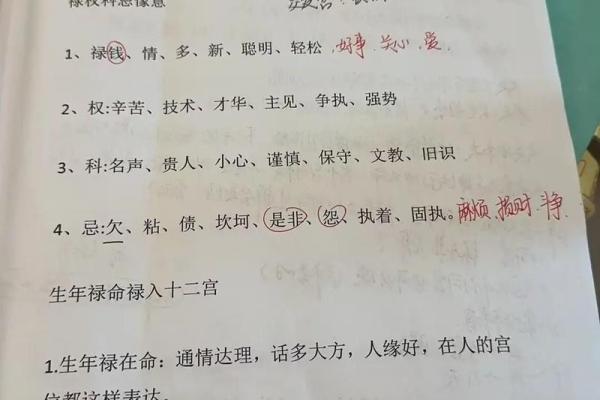 禄权科忌像意
1、禄钱、情、多、新、聪明、轻松 好事、关心、爱、
2、权:辛苦、技术、才华、主见、争执、强势
3、科:名声、贵人、小心、谨慎、保守、文教、旧识
4、忌:欠、粘、债、坎坷、是非、怨、执着、固执。麻烦、损财、斗争、
生年禄命禄入十二宫
1.生年禄在命：通情达理，话多大方，人缘好，在人的宫
位都这样表达。